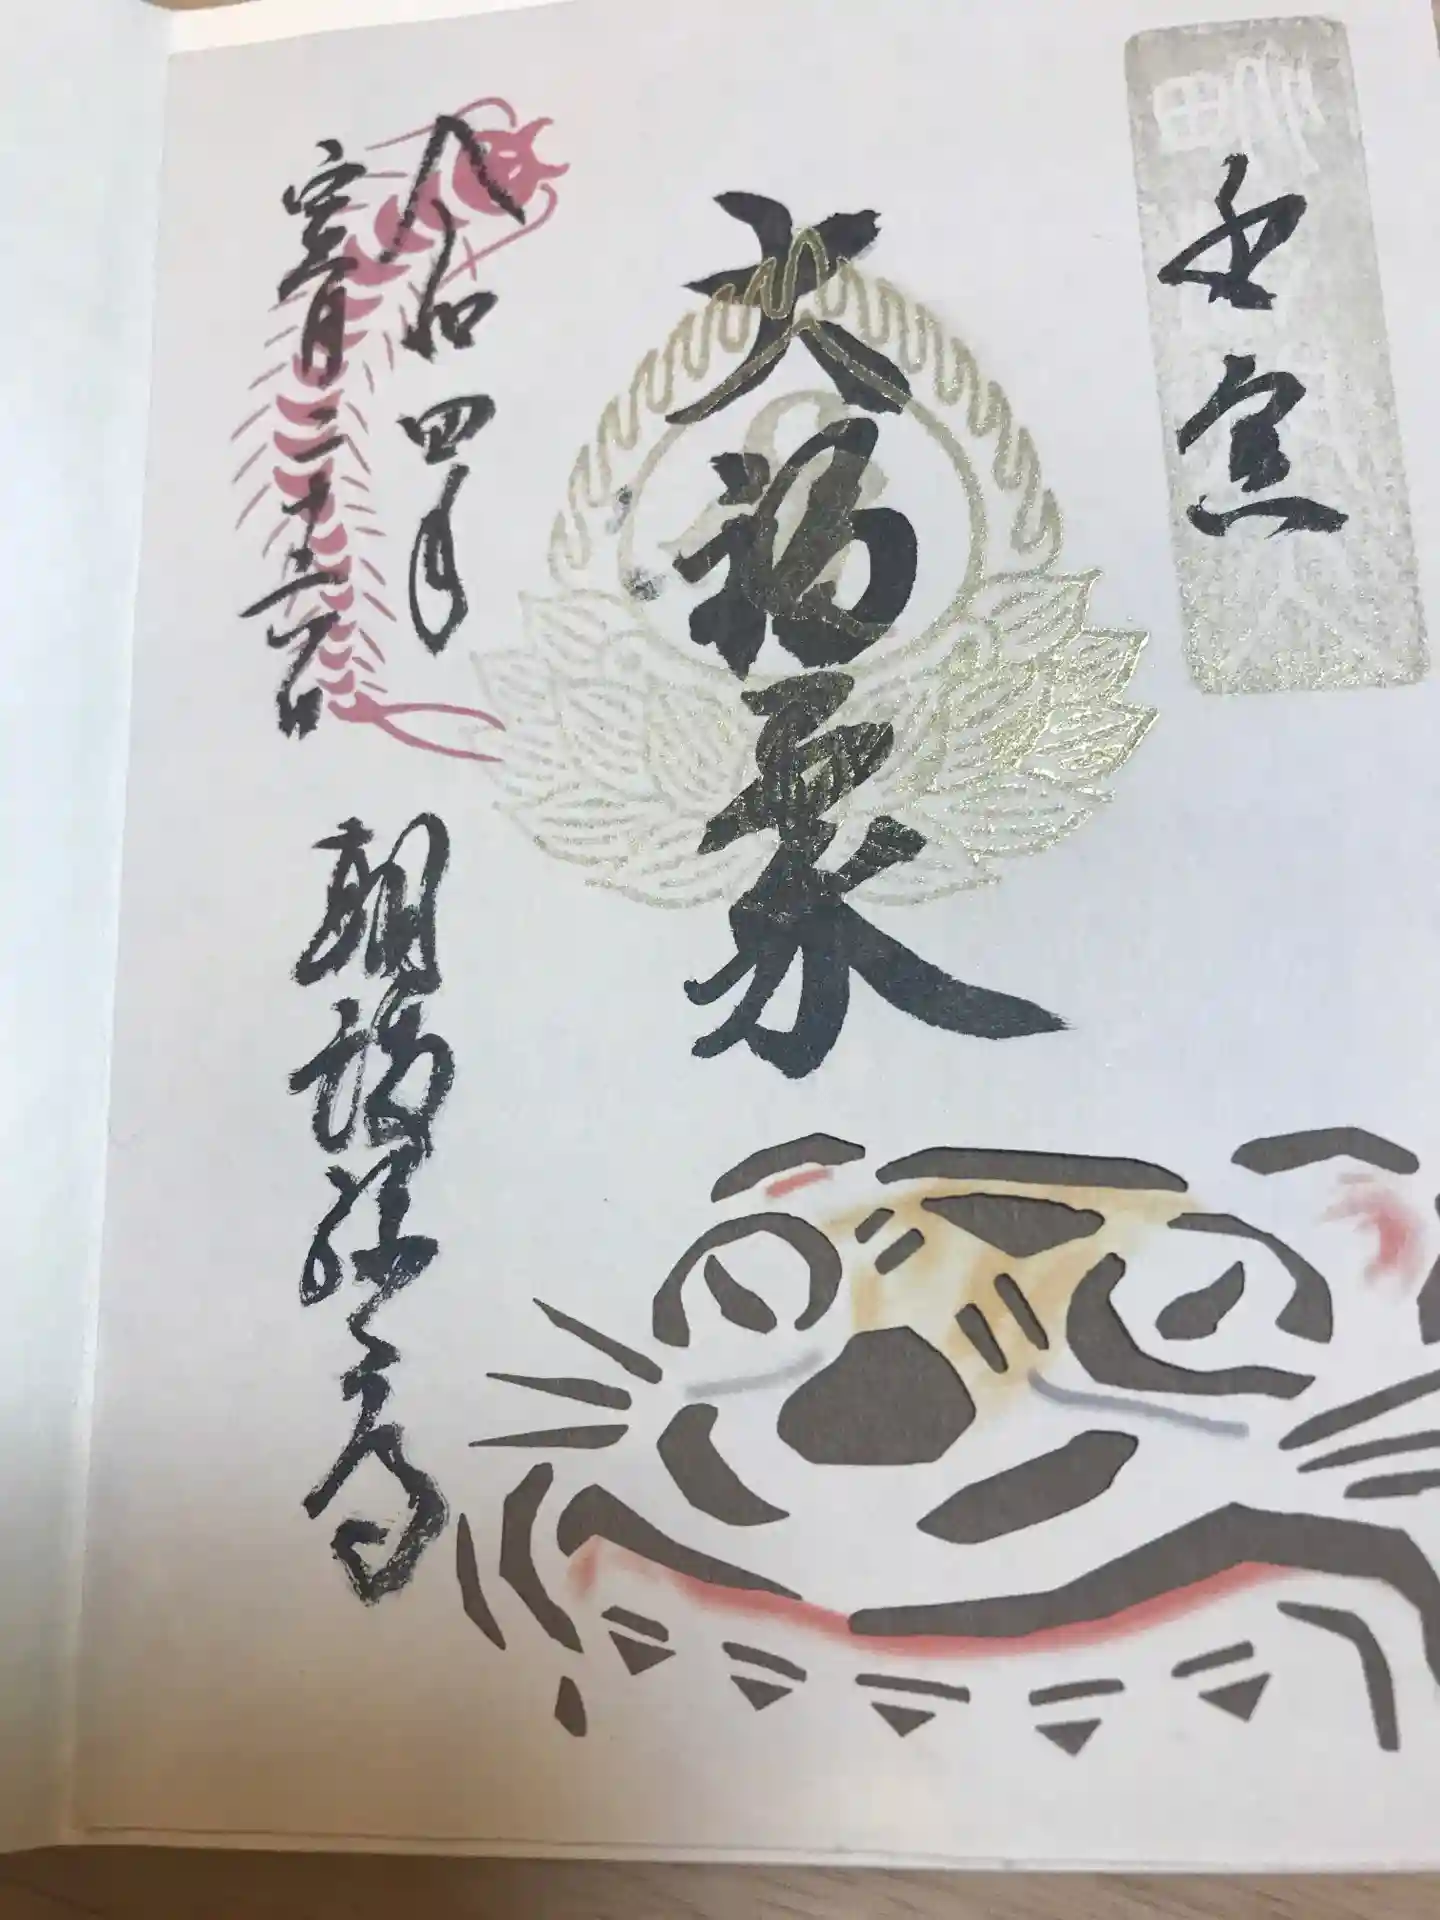 壬寅
大福聚
令和四年
壹月二十六日
朝護孫子寺